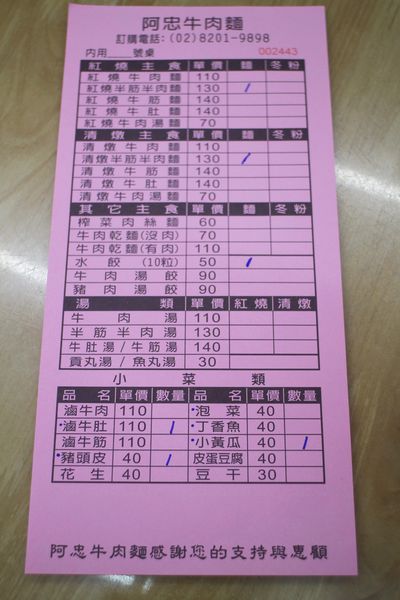 阿忠牛肉麵
訂購電話:(02)8201-9898
内用____號桌 002443
紅燒主食 單價 麵 冬粉
紅燒牛肉麵 110
紅燒半筋半肉麵 130 /
紅燒牛筋麵 140
紅燒牛肚麵 140
紅燒牛肉湯麵 70
清燉主食 單價 麵 冬粉
清燉牛肉麵 110
清燉半筋半肉麵 130 /
清燉牛筋麵 140
清燉牛肚麵 140
清燉牛肉湯麵 70
其它主食 單價 麵 冬粉
榨菜肉絲麵 60
牛肉乾麵(沒肉) 70
牛肉乾麵(有肉) 110
水餃(10粒) 50 /
牛肉湯餃 90
豬肉湯餃 90
湯類 單價 紅燒 清燉
牛肉湯 110
半筋半肉湯 130
牛肚湯/牛筋湯 140
貢丸湯/魚丸湯 30
小菜類
品名 單價 數量 品名 單價 數量
滷牛肉 110 泡菜 40
滷牛肚 110 / 丁香魚 40
滷牛筋 110 小黃瓜 40 /
豬頭皮 40 / 皮蛋豆腐 40
花生 40 豆干 30
阿忠牛肉麵感謝您的支持與惠顧